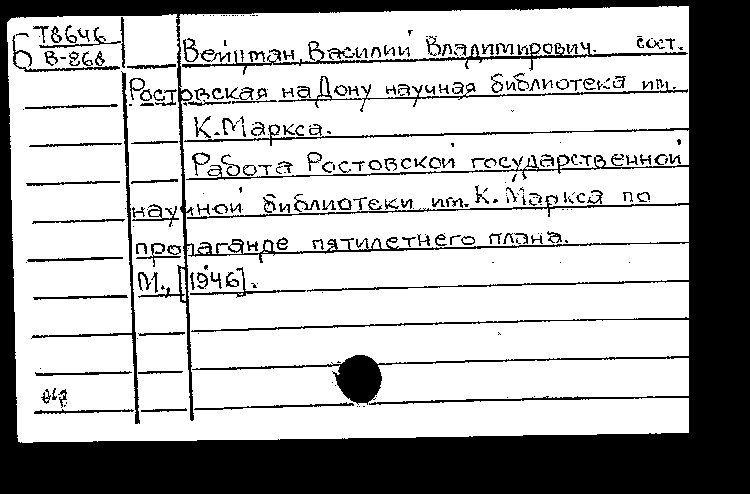 Б Т8646
В-868
Вейцман, Василий Владимирович. сост.
Ростовская на Дону научная библиотека им.
К. Маркса.
Работа Ростовской государственной
научной библиотеки им. К. Маркса по
пропаганде пятилетнего плана.
М., [1946].